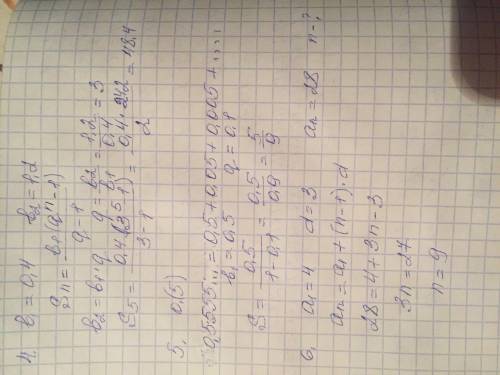 4. b₁ = 0,4   b₂ = 1,2
Sn = b₁(qⁿ - 1) / q - 1
b₂ = b₁·q   q = b₂/b₁ = 1,2/0,4 = 3
S₅ = 0,4(3⁵ - 1) / 3 - 1 = 0,4·242 / 2 = 48,4
5. 0,(5)
0,5555... = 0,5 + 0,05 + 0,005 + ....
b₁ = 0,5   q = 0,1
S = 0,5 / 1 - 0,1 = 0,5/0,9 = 5/9
6. a₁ = 4   d = 3   an = 28   n - ?
an = a₁ + (n-1)·d
28 = 4 + 3n - 3
3n = 27
n = 9